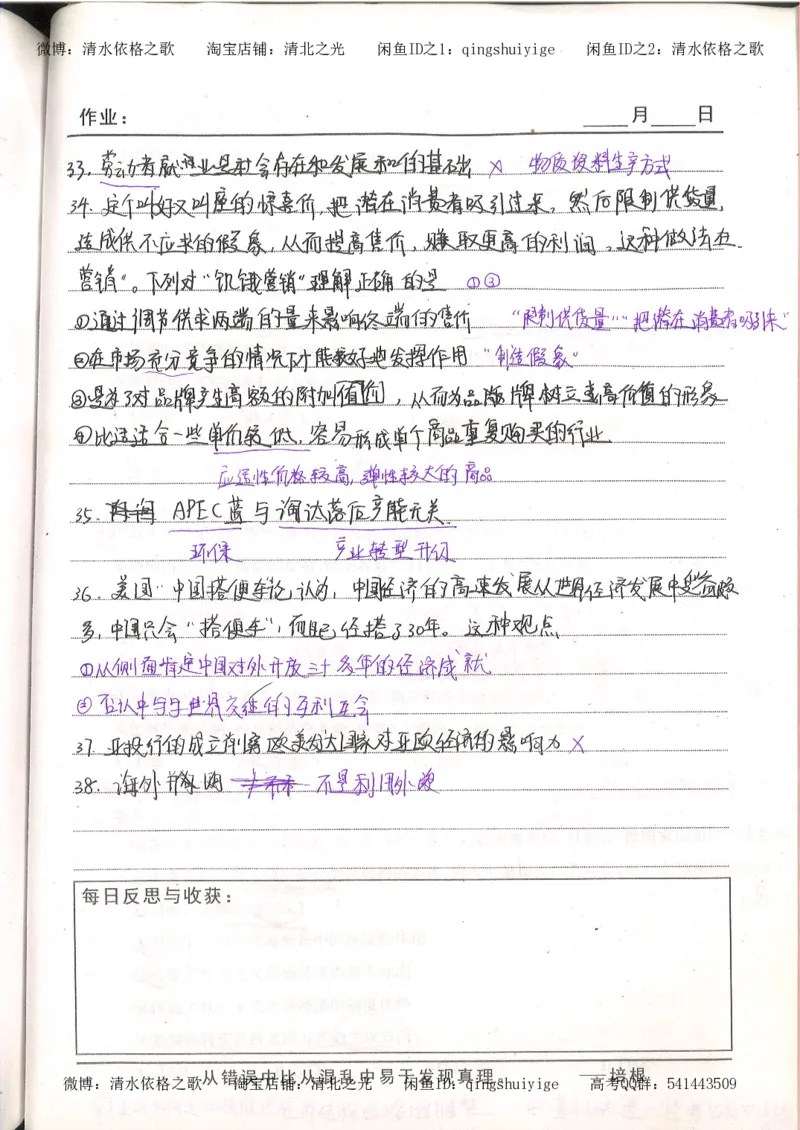 微博：清水依格之歌 淘宝店铺：清北之光 闲鱼ID之1：qingshuiyige 闲鱼ID之2：清水依格之歌
作业： 月 日
33. 劳动者就业是社会存在和发展和的基础 × 物质资料生产方式
34. 定个叫好又叫座的惊喜价，把潜在消费者吸引过来，然后限制供货量，
造成供不应求的假象，从而提高售价，赚取更高的利润，这种做法为
营销"。下列对"饥饿营销"理解正确的是 ①③
①通过调节供求两端的量来影响终端的售价 "限制供货量""把潜在消费者吸引来"
②在市场充分竞争的情况下才能较好地发挥作用 "制造假象"
③是为了对品牌产生高额的附加值，从而为品牌树立高价值的形象
④比适合一些单价较低，容易形成单个商品重复购买的行业
应适性价格较高，弹性较大的商品
35. APEC蓝与淘汰落后产能无关
环保 产业转型升级
36. 美国"中国搭便车论认为，中国经济的高速发展从世界经济发展中受益颇
多，中国只会"搭便车"，而且已经搭了30年。这种观点
①从侧面肯定中国对外开放三十多年的经济成就
②否认中与世界交往的互利
37. 亚投行的成立削弱欧美发达国家对亚欧经济的影响力 ×
38. 海外并购 不是利用外资
每日反思与收获：
从错误中比从混乱中易于发现真理。 ——培根
微博：清水依格之歌 淘宝店铺：清北之光 闲鱼ID：qingshuiyige 高考QQ群：541443509